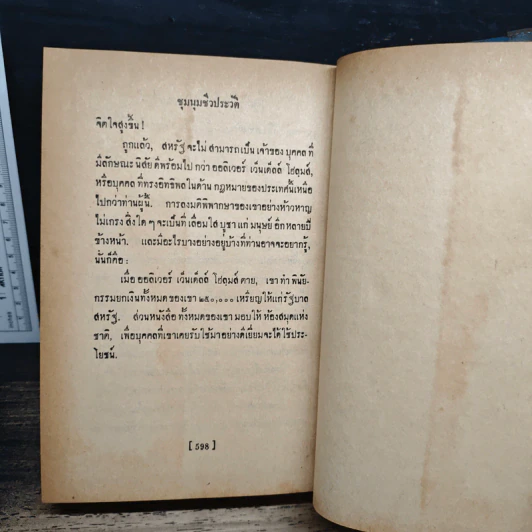 ชุมนุมชีวประวัติ
จิตใจสูงขึ้น!
ถูกแล้ว, สหรัฐจะไม่ สามารถเป็น เจ้าของ บุคคล ที่
มีลักษณะ นิสัย ดีพร้อมไป กว่า ออลิเวอร์ เว็นเด็ลล์ โฮลมส์,
หรือบุคคล ที่ทรงอิทธิพล ในด้าน กฎหมายของ ประเทศนั้นเหนือ
ไปกว่าท่านผู้นี้. การลงมติพิพากษาของเขาอย่างห้าวหาญ
ไม่เกรง สิ่งใด ๆ จะเป็นที่ เลื่อมใส บูชา แก่ มนุษย์ อีก หลายปี
ข้างหน้า. และมีอะไรบางอย่างอยู่บ้างที่ท่านอาจจะอยากรู้,
นั่นก็คือ:
เมื่อ ออลิเวอร์ เว็นเด็ลล์ โฮลมส์ ตาย, เขา ทำ พินัย-
กรรมยกเงินทั้งหมด ของเขา ๒๕๐,๐๐๐ เหรียญ ให้แก่ รัฐบาล
สหรัฐ. ส่วนหนังสือ ทั้งหมดของเขา มอบ ให้ ห้องสมุดแห่ง
ชาติ, เพื่อบุคคลที่เขาเคยรับใช้มาอย่างดีเยี่ยมจะได้ใช้ประ-
โยชน์.
[ 598 ]